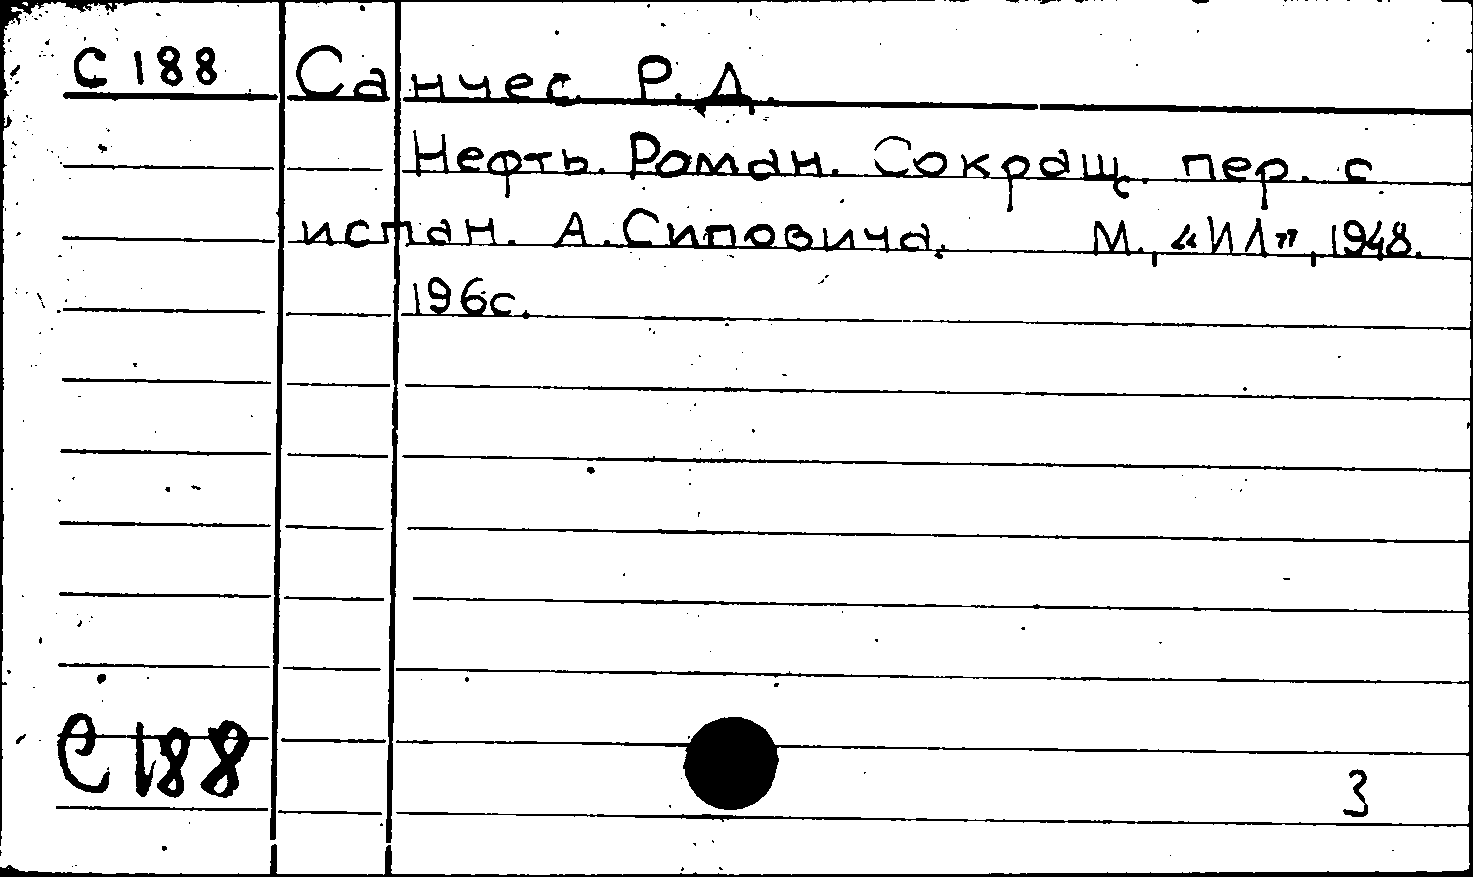 С 188 Санчес Р. Д.
Нефть. Роман. Сокращ. пер. с
испан. А. Сиповича. М., «ИЛ», 1948.
196с.
С 188
3